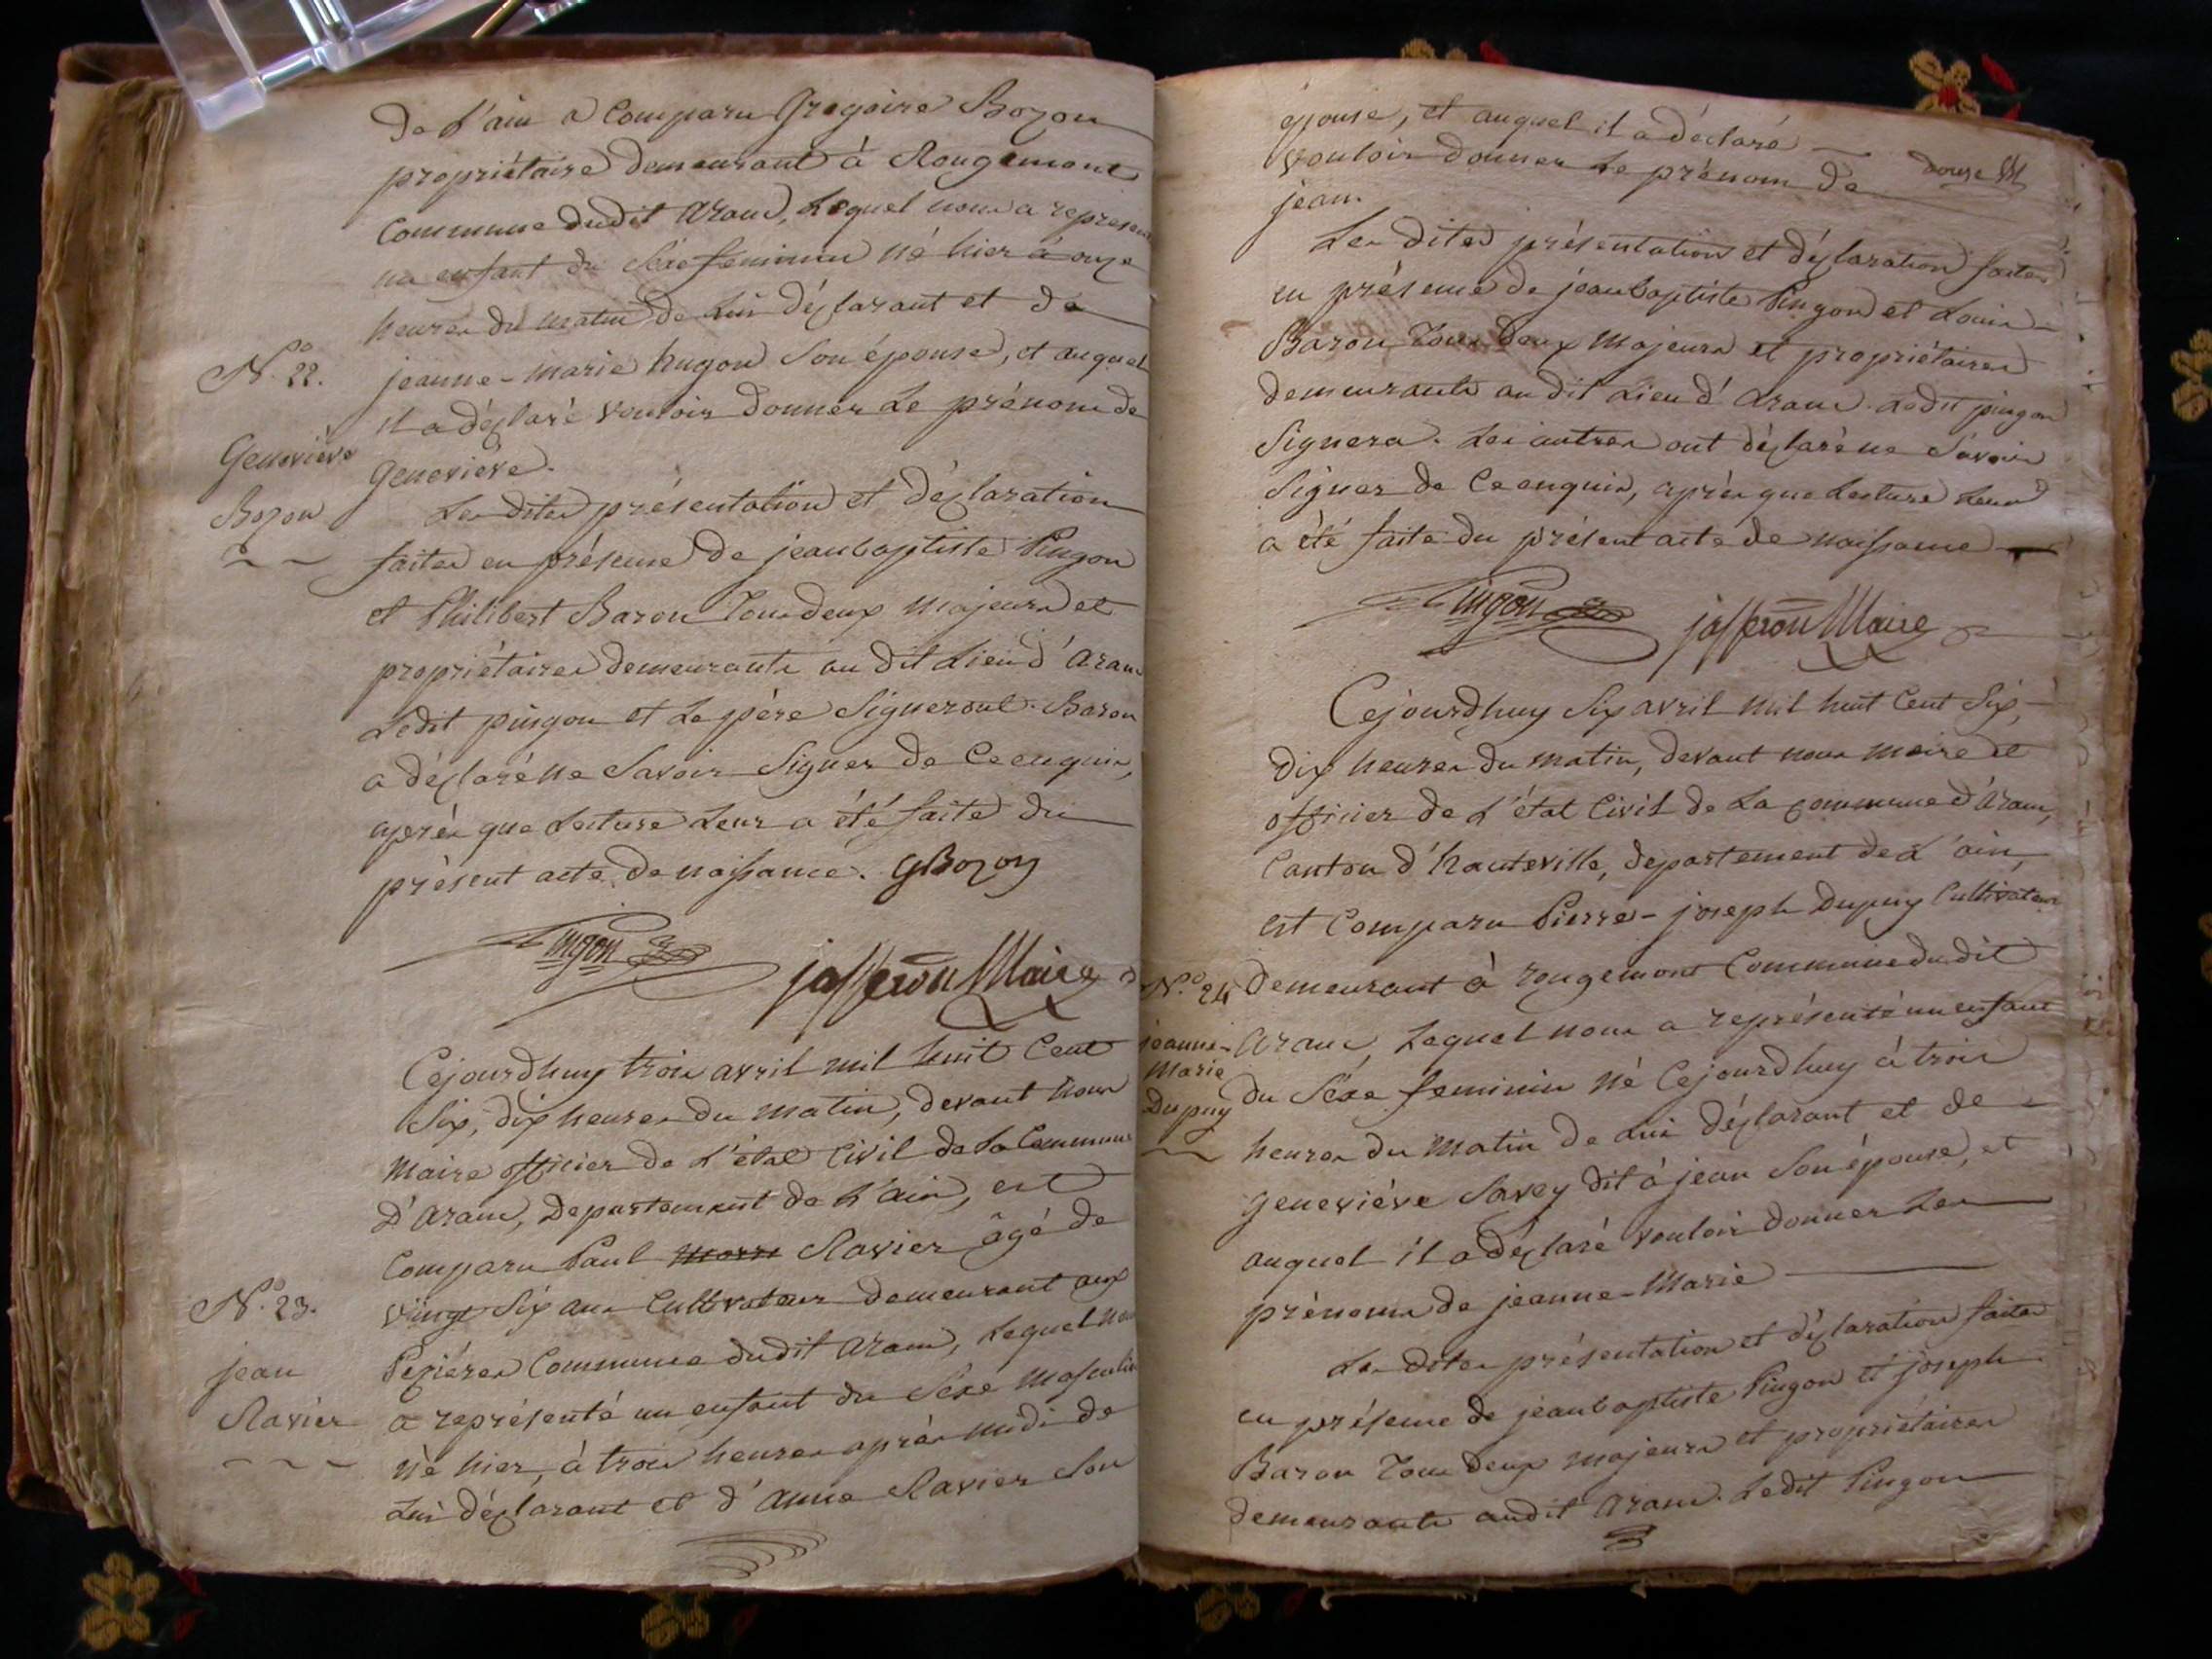 de l'ain a comparu Gregoire Bozon
propriétaire demeurant à Rougemont
commune dudit aranc, lequel nous a represen
un enfant du séxe feminin né hier à onze
heures du matin de lui déclarant et de
N.o 22.
jeanne-marie hugon son épouse, et auquel
il a déclaré vouloir donner le prénom de
Geneviève
geneviève.
Bozon
Les dites présentation et déclaration
faites en présence de jean baptiste Pingon
et Philibert Baron tous deux majeurs et
propriétaires demeurants au dit lieu d'aranc
Ledit pingon et le père signeront. Baron
a déclaré ne savoir signer de ce enquis,
après que lecture leur a été faite du
présent acte de naissance. GBozon
Pingon
jasseron Maire
Cejourdhuy trois avril mil huit cent
six, dix heures du matin, devant nous
maire officier de l'état civil de la commune
D'aranc, Departement de l'ain, est
comparu Paul Ravier âgé de
N.o 23.
vingt six ans cultivateur demeurant aux
jean
Pezières commune dudit aranc, lequel nous
Ravier
a représenté un enfant du séxe masculin
né hier, à trois heures après midi de
lui déclarant et d'anne Ravier son
épouse, et auquel il a déclaré
vouloir donner le prénom de
douze
jean.
Les dites présentation et déclaration faites
en présence de jean baptiste Pingon et Louis
Baron tous deux majeurs et propriétaires
demeurants au dit lieu d'aranc. Ledit pingon
signera. Les autres ont déclaré ne savoir
signer de ce enquis, après que lecture leur
a été faite du présent acte de naissance
Pingon
jasseron Maire
Cejourdhuy six avril mil huit cent six,
dix heures du matin, devant nous maire et
officier de l'état civil de la commune d'aranc,
canton d'hauteville, département de l'ain,
est comparu Pierre-joseph Dupuy cultivateur
N.o 24
demeurant à rougemont commune dudit
jeanne-
aranc, lequel nous a représenté un enfant
Marie
Dupuy
du séxe feminin né cejourdhuy à trois
heures du matin de lui déclarant et de
geneviève Savey dit à jean son épouse, et
auquel il a déclaré vouloir donner les
prénoms de jeanne-Marie
Les dites présentation et déclaration faites
en présence de jean baptiste Pingon et joseph
Baron tous deux majeurs et propriétaires
demeurants audit aranc. Ledit Pingon